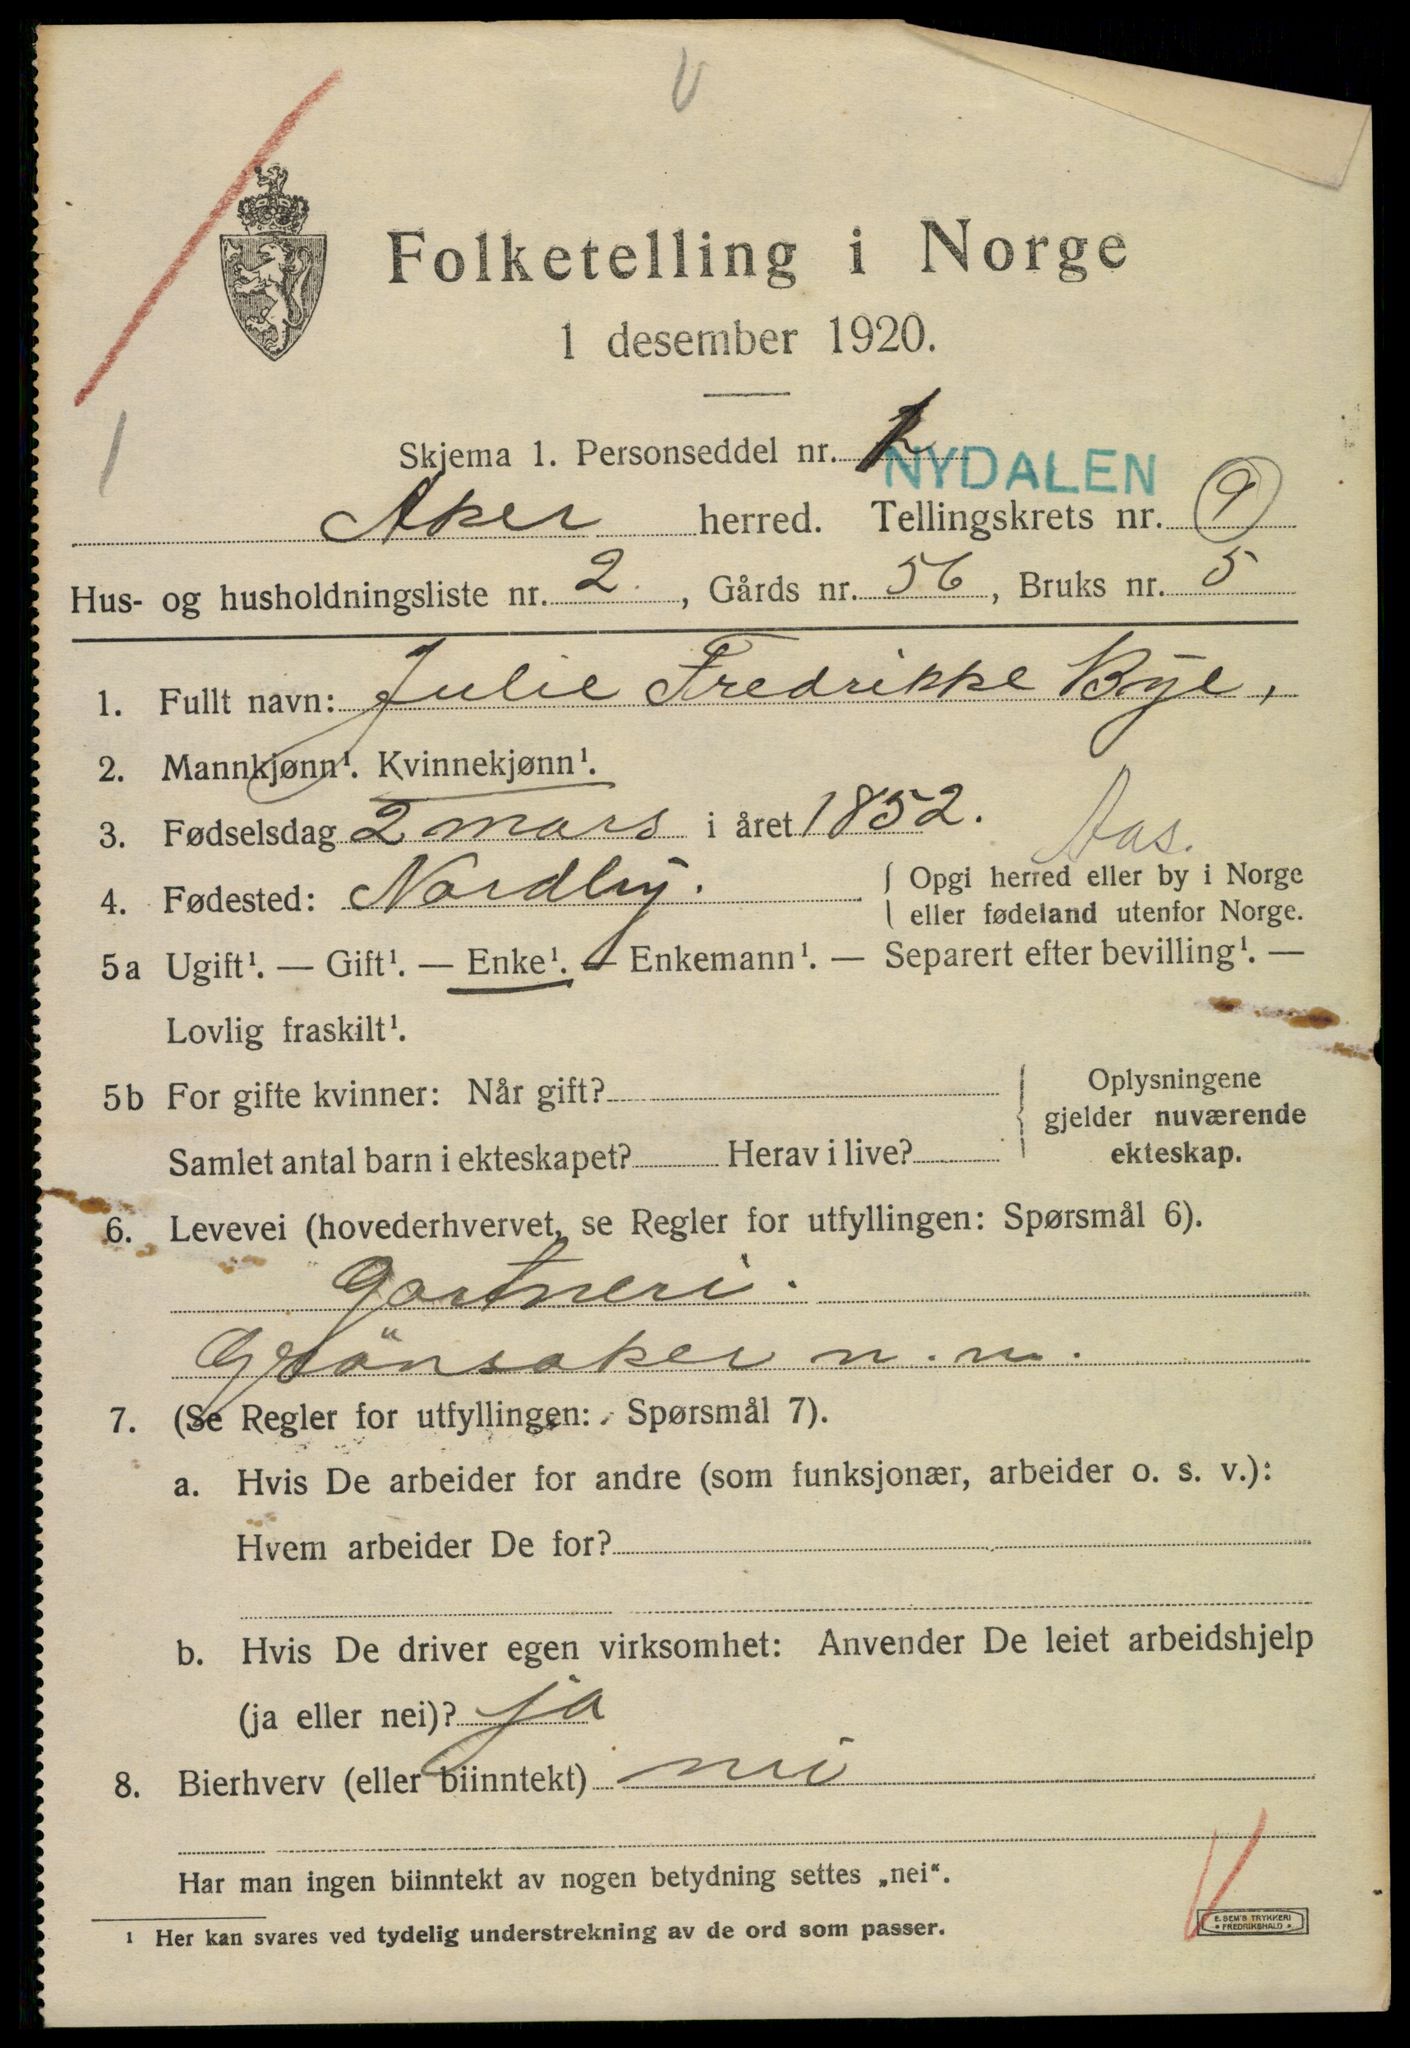 Folketelling i Norge
1 desember 1920.
Skjema 1. Personseddel nr.
NYDALEN
Aker herred. Tellingskrets nr. 9
Hus- og husholdningsliste nr. 2, Gårds nr. 56, Bruks nr. 5
1. Fullt navn: Julie Fredrikke Bye,
2. Mannkjønn¹. Kvinnekjønn¹.
3. Fødselsdag 2 mars i året 1852.
Aas.
4. Fødested: Nordby. Opgi herred eller by i Norge
eller fødeland utenfor Norge.
5a Ugift¹. — Gift¹. — Enke¹. — Enkemann¹. — Separert efter bevilling¹. —
Lovlig fraskilt¹.
5b For gifte kvinner: Når gift? Oplysningene
gjelder nuværende
Samlet antal barn i ekteskapet? Herav i live? ekteskap.
6. Levevei (hovederhvervet, se Regler for utfyllingen: Spørsmål 6).
Gartneri.
Grönsaker m. m.
7. (Se Regler for utfyllingen: Spørsmål 7).
a. Hvis De arbeider for andre (som funksjonær, arbeider o. s. v.):
Hvem arbeider De for?
b. Hvis De driver egen virksomhet: Anvender De leiet arbeidshjelp
(ja eller nei)? ja
8. Bierhverv (eller biinntekt) nei
Har man ingen biinntekt av nogen betydning settes „nei“.
¹ Her kan svares ved tydelig understrekning av de ord som passer.
E. SEM'S TRYKKERI
* FREDRIKSHALD *